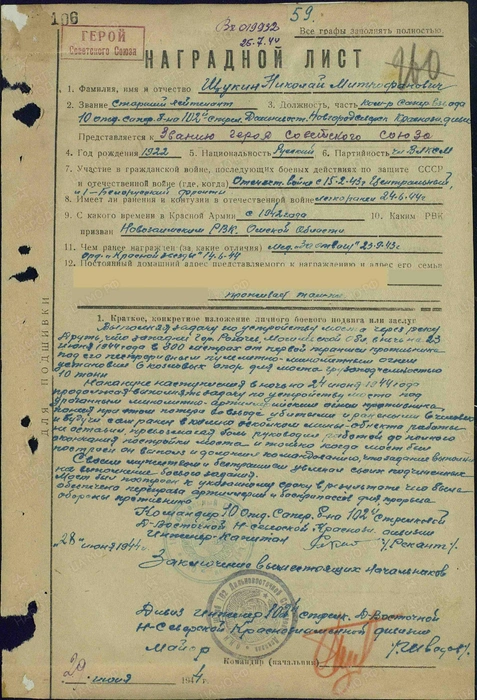 106
59.
ГЕРОЙ
Советского Союза
Вх 019932
26.7.44
Все графы заполнять полностью.
НАГРАДНОЙ ЛИСТ
260
1. Фамилия, имя и отчество Щукин Николай Митрофанович
2. Звание Старший лейтенант 3. Должность, часть Ком-р Сапер. Взвода
10 отд. сапер. б-на 102й стрел. Дальневост. Новгородсеверск Краснозн. дивиз
Представляется к Званию героя Советского Союза
4. Год рождения 1922 5. Национальность Русский 6. Партийность чл. ВЛКСМ
7. Участие в гражданской войне, последующих боевых действиях по защите СССР
и отечественной войне (где, когда) Отечеств. война с 15-2-43г Центральный,
и 1-Белорусский фронты
8. Имеет ли ранения и контузии в отечественной войне легко ранен 24.6.44г
9. С какого времени в Красной Армии с 1942 года 10. Каким РВК
призван Новозаимским РВК. Омской Области
11. Чем ранее награжден (за какие отличия) Мед. За отвагу" 23-9-43г
Орд. "Красной звезды" 14.6.44
12. Постоянный домашний адрес представляемого к награждению и адрес его семьи
проживает там же
1. Краткое, конкретное изложение личного боевого подвига или заслуг
Выполняя задачу по устройству моста через реку
Друть, что западнее гор. Рогачев Могилевской Обл. в ночь на 23
июня 1944 года в 300 метрах от первой траншеи противника
под его непрерывным пулеметно-минометным огнем
установил 6 козловых опор для моста грузоподъемностью
10 тонн
Накануне наступления в ночь на 24 июня 1944 года
продолжал выполнять задачу по устройству моста под
ураганным минометно-артиллерийским огнем противника,
понеся при этом потери во взводе убитыми и ранеными 6 человек
и будучи сам ранен в колено осколком мины-объекта работы
не оставил превозмогая боль руководил работой до полного
окончания постройки моста и только когда мост был
построен он выполз и доложил командованию, что задание выполнил
Своим мужеством и бесстрашием увлекал своих подчиненных
на выполнение боевого задания.
Мост был построен к указанному сроку в результате чего была
обеспечена переправа артиллерии и боеприпасов для прорыва
обороны противника
Командир 10 Отд. Сапер. Б-на 102й Стрелковой
Д-Восточной Н-Северской Краснозн. дивизии
Инженер-Капитан /Рекант/.
"28" июня 1944г
Заключение вышестоящих начальников
Дивиз Инженер 102й стрелк. Д-Восточной
Н-Северской Краснознаменной дивизии
Майор /Шведов/.
Командир (начальник)
июня 194 4г.
ДЛЯ ПОДШИВКИ